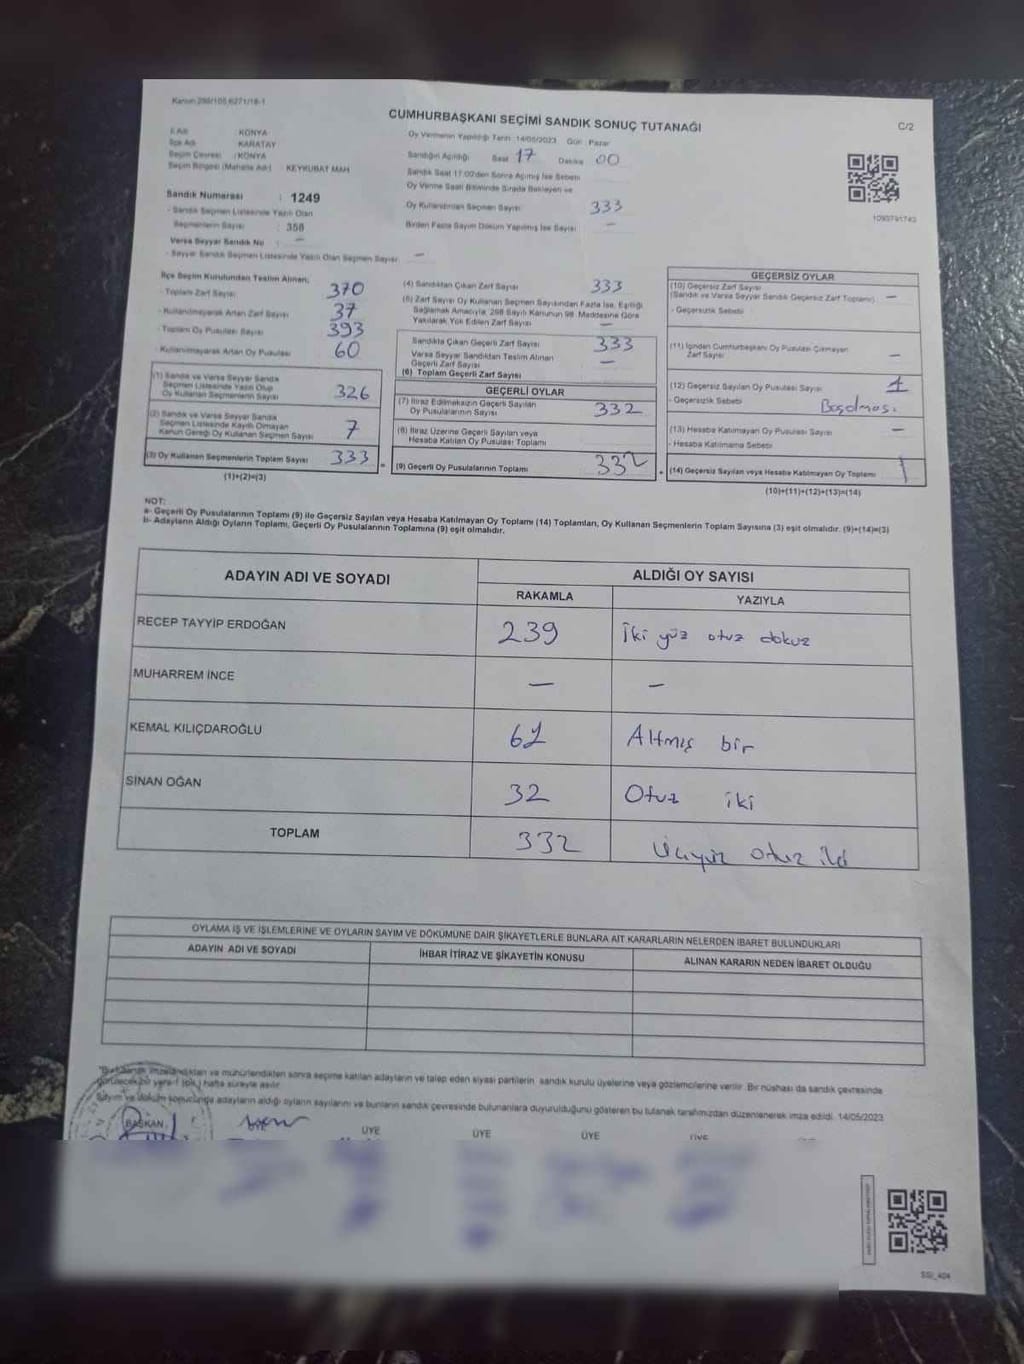 Kanun 298/105,6271/18-1
CUMHURBAŞKANI SEÇİMİ SANDIK SONUÇ TUTANAĞI
C/2
İl Adı : KONYA
İlçe Adı : KARATAY
Seçim Çevresi : KONYA
Seçim Bölgesi (Mahalle Adı) : KEYKUBAT MAH
Sandık Numarası : 1249
- Sandık Seçmen Listesinde Yazılı Olan
Seçmenlerin Sayısı : 358
Varsa Seyyar Sandık No : —
- Seyyar Sandık Seçmen Listesinde Yazılı Olan Seçmen Sayısı : —
Oy Vermenin Yapıldığı Tarih : 14/05/2023 Gün : Pazar
Sandığın Açıldığı Saat 17 Dakika 00
Sandık Saat 17.00'den Sonra Açılmış İse Sebebi
Oy Verme Saati Bitiminde Sırada Bekleyen ve
Oy Kullandırılan Seçmen Sayısı 333
Birden Fazla Sayım Döküm Yapılmış İse Sayısı —
1090791743
İlçe Seçim Kurulundan Teslim Alınan;
- Toplam Zarf Sayısı 370
- Kullanılmayarak Artan Zarf Sayısı 37
- Toplam Oy Pusulası Sayısı 393
- Kullanılmayarak Artan Oy Pusulası 60
(1) Sandık ve Varsa Seyyar Sandık
Seçmen Listesinde Yazılı Olup
Oy Kullanan Seçmenlerin Sayısı 326
(2) Sandık ve Varsa Seyyar Sandık
Seçmen Listesinde Kayıtlı Olmayan
Kanun Gereği Oy Kullanan Seçmen Sayısı 7
(3) Oy Kullanan Seçmenlerin Toplam Sayısı 333
(1)+(2)=(3)
(4) Sandıktan Çıkan Zarf Sayısı 333
(5) Zarf Sayısı Oy Kullanan Seçmen Sayısından Fazla İse, Eşitliği
Sağlamak Amacıyla, 298 Sayılı Kanunun 98. Maddesine Göre
Yakılarak Yok Edilen Zarf Sayısı —
Sandıkta Çıkan Geçerli Zarf Sayısı 333
Varsa Seyyar Sandıktan Teslim Alınan
Geçerli Zarf Sayısı —
(6) Toplam Geçerli Zarf Sayısı
GEÇERLİ OYLAR
(7) İtiraz Edilmeksizin Geçerli Sayılan
Oy Pusulalarının Sayısı 332
(8) İtiraz Üzerine Geçerli Sayılan veya
Hesaba Katılan Oy Pusulası Toplamı
= (9) Geçerli Oy Pusulalarının Toplamı 332
GEÇERSİZ OYLAR
(10) Geçersiz Zarf Sayısı
(Sandık ve Varsa Seyyar Sandık Geçersiz Zarf Toplamı) —
- Geçersizlik Sebebi
(11) İçinden Cumhurbaşkanı Oy Pusulası Çıkmayan
Zarf Sayısı —
(12) Geçersiz Sayılan Oy Pusulası Sayısı 1
- Geçersizlik Sebebi Boş olması
(13) Hesaba Katılmayan Oy Pusulası Sayısı —
- Hesaba Katılmama Sebebi
+ (14) Geçersiz Sayılan veya Hesaba Katılmayan Oy Toplamı 1
(10)+(11)+(12)+(13)=(14)
NOT:
a- Geçerli Oy Pusulalarının Toplamı (9) ile Geçersiz Sayılan veya Hesaba Katılmayan Oy Toplamı (14) Toplamları, Oy Kullanan Seçmenlerin Toplam Sayısına (3) eşit olmalıdır. (9)+(14)=(3)
b- Adayların Aldığı Oyların Toplamı, Geçerli Oy Pusulalarının Toplamına (9) eşit olmalıdır.
ADAYIN ADI VE SOYADI
ALDIĞI OY SAYISI
RAKAMLA YAZIYLA
RECEP TAYYİP ERDOĞAN 239 İki yüz otuz dokuz
MUHARREM İNCE — —
KEMAL KILIÇDAROĞLU 61 Altmış bir
SİNAN OĞAN 32 Otuz iki
TOPLAM 332 Üçyüz otuz iki
OYLAMA İŞ VE İŞLEMLERİNE VE OYLARIN SAYIM VE DÖKÜMÜNE DAİR ŞİKAYETLERLE BUNLARA AİT KARARLARIN NELERDEN İBARET BULUNDUKLARI
ADAYIN ADI VE SOYADI İHBAR İTİRAZ VE ŞİKAYETİN KONUSU ALINAN KARARIN NEDEN İBARET OLDUĞU
imzalandıktan ve mühürlendikten sonra seçime katılan adayların ve talep eden siyasi partilerin sandık kurulu üyelerine veya gözlemcilerine verilir. Bir nüshası da sandık çevresinde
görülecek bir yere 1 (bir) hafta süreyle asılır.
Sayım ve döküm sonucunda adayların aldığı oyların sayılarını ve bunların sandık çevresinde bulunanlara duyurulduğunu gösteren bu tutanak tarafımızdan düzenlenerek imza edildi. 14/05/2023
BAŞKAN ÜYE ÜYE ÜYE ÜYE
SSİ_404